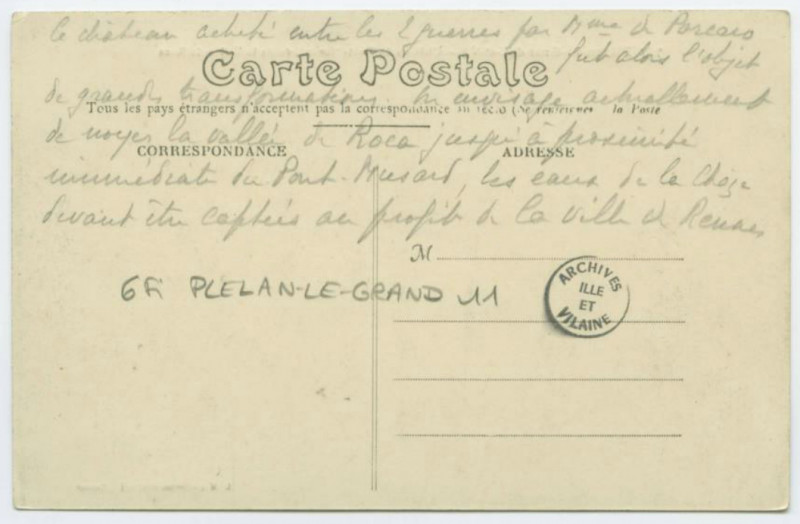 le château acheté entre les 2 guerres par Mme de Porcaro
fut alors l'objet
Carte Postale
de grandes transformations. On envisage actuellement
Tous les pays étrangers n'acceptent pas la correspondance au recto (Se renseigner à la Poste
de noyer la vallée de Roca jusqu'à proximité
CORRESPONDANCE
ADRESSE
immédiate du Pont-Musard, les eaux de la Chèze
devant être captées au profit de la ville de Rennes
M
6Fi PLELAN-LE-GRAND 11
ARCHIVES
ILLE
ET
VILAINE